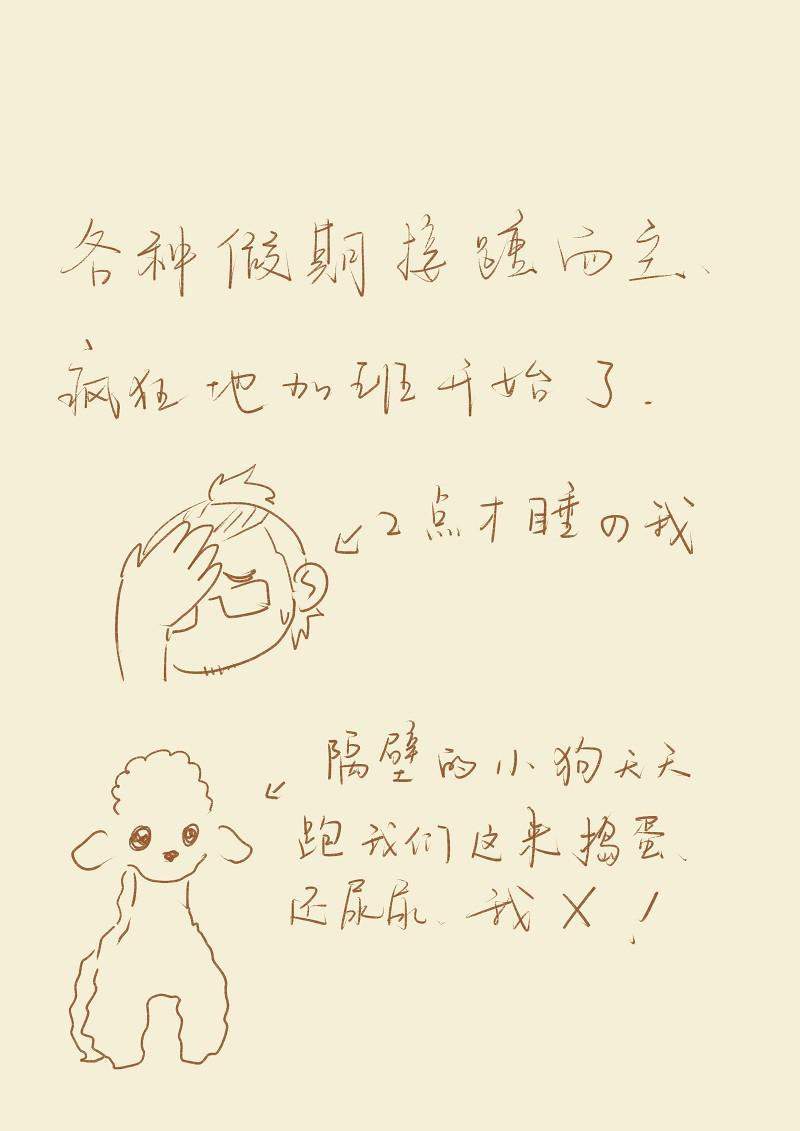 各种假期接踵而至、
疯狂地加班开始了.
2点才睡の我
隔壁的小狗天天
跑我们这来捣蛋、
还尿尿、我X!